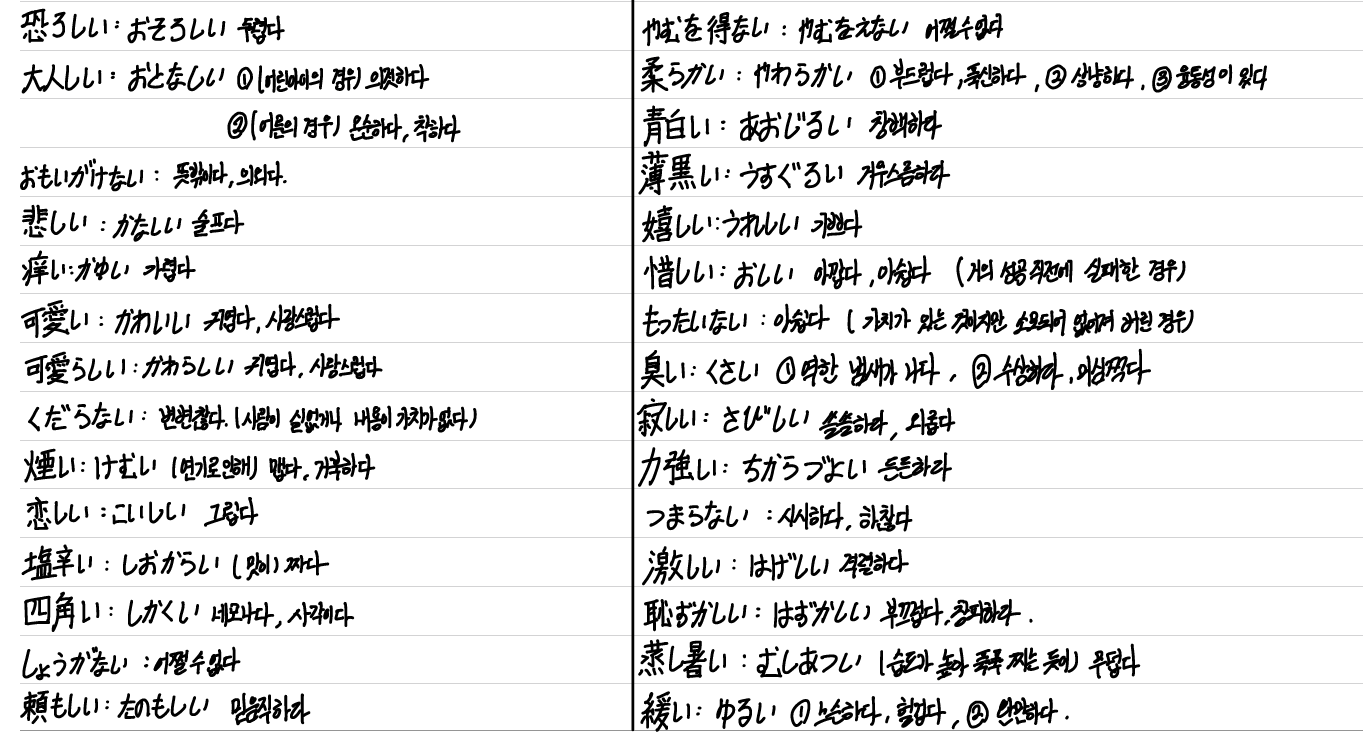 恐ろしい: おそろしい 두렵다
大人しい: おとなしい ①(어린아이의 경우) 의젓하다
②(어른의 경우) 온순하다, 착하다
おもいがけない: 뜻밖이다, 의외다.
悲しい: かなしい 슬프다
痒い: かゆい 가렵다
可愛い: かわいい 귀엽다, 사랑스럽다
可愛らしい: かわらしい 귀엽다, 사랑스럽다
くだらない: 변변찮다. (사람이 실없거나 내용이 가치가 없다)
煙い: けむい (연기로 인해) 맵다, 거북하다
恋しい: こいしい 그립다
塩辛い: しおからい (맛이) 짜다
四角い: しかくい 네모나다, 사각이다
しょうがない: 어쩔 수 없다
頼もしい: たのもしい 믿음직하다
やむを得ない: やむをえない 어쩔 수 없다
柔らかい: やわらかい ① 부드럽다, 푹신하다, ② 상냥하다, ③ 융통성이 있다
青白い: あおじるい 창백하다
薄黒い: うすぐるい 거무스름하다
嬉しい: うれしい 기쁘다
惜しい: おしい 아깝다, 아쉽다 (거의 성공 직전에 실패한 경우)
もったいない: 아쉽다 (가치가 있는 것이지만 소모되어 없어져 버린 경우)
臭い: くさい ① 역한 냄새가 나다, ② 수상하다, 미심쩍다
寂しい: さびしい 쓸쓸하다, 외롭다
力強い: ちからづよい 든든하다
つまらない: 시시하다, 하찮다
激しい: はげしい 격렬하다
恥ずかしい: はずかしい 부끄럽다, 창피하다.
蒸し暑い: むしあつい (습도가 높아 푹푹 찌는 듯이) 무덥다
緩い: ゆるい ① 느슨하다, 헐겁다, ② 완만하다.